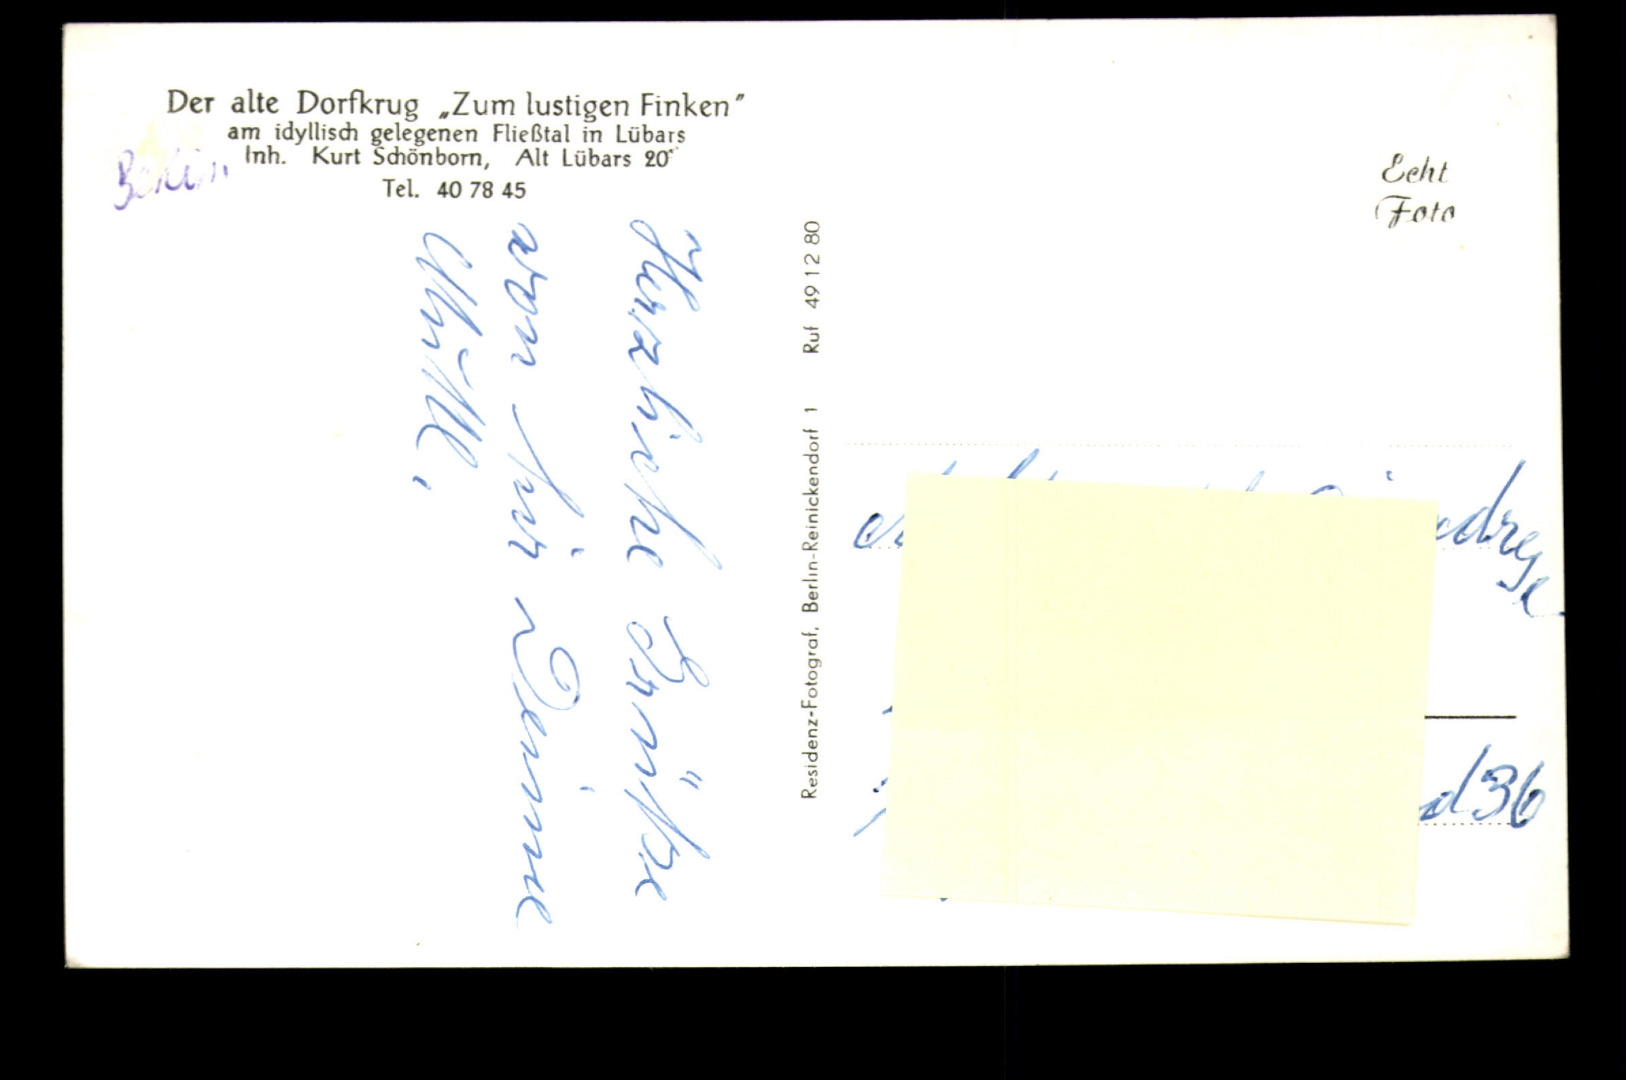 Der alte Dorfkrug „Zum lustigen Finken"
am idyllisch gelegenen Fließtal in Lübars
Inh. Kurt Schönborn, Alt Lübars 20
Tel. 40 78 45
Berlin
Echt
Foto
Herzliche Grüße
von hier Deine
Residenz-Fotograf, Berlin-Reinickendorf 1 Ruf 49 12 80
d 36